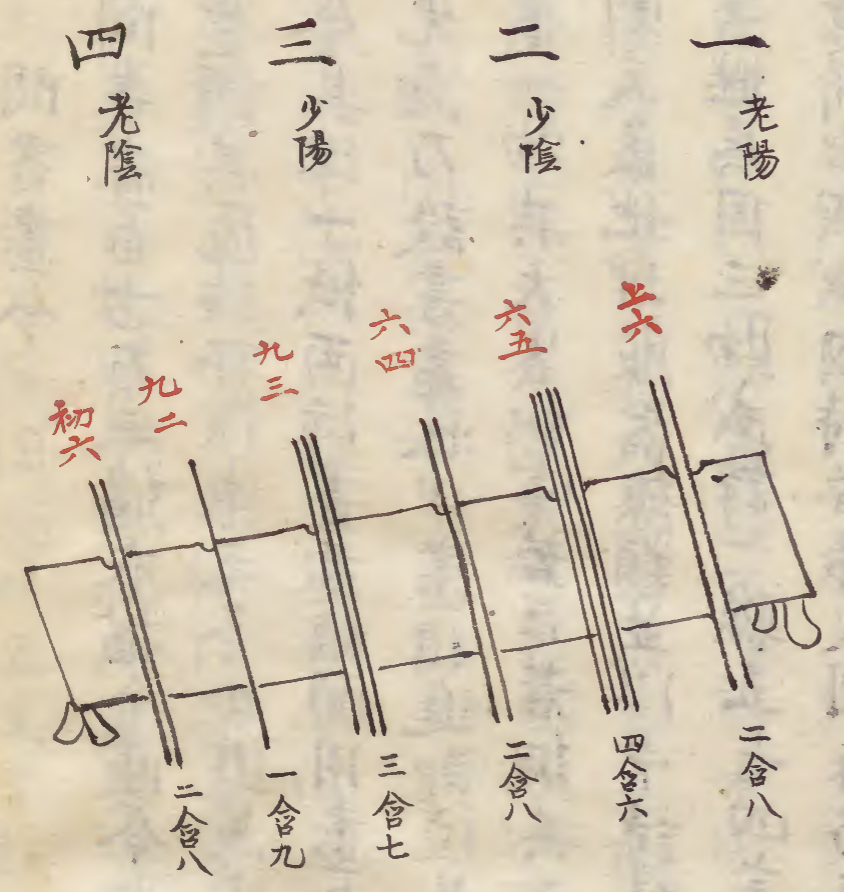 一 老陽
二 少陰
三 少陽
四 老陰
上六
六五
六四
九三
九二
初六
二含八
四含六
二含八
三含七
一含九
二含八